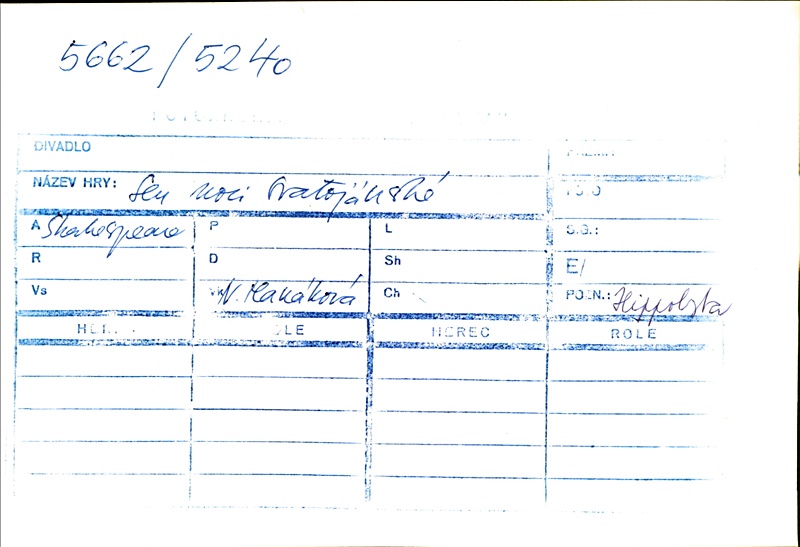 5662/5240
DIVADLO
NÁZEV HRY: Sen noci svatojánské
A Shakespeare P L S.G.:
R D Sh E/
Vs N. Hanáková Ch POZN.: Hippolyta
HEREC ROLE